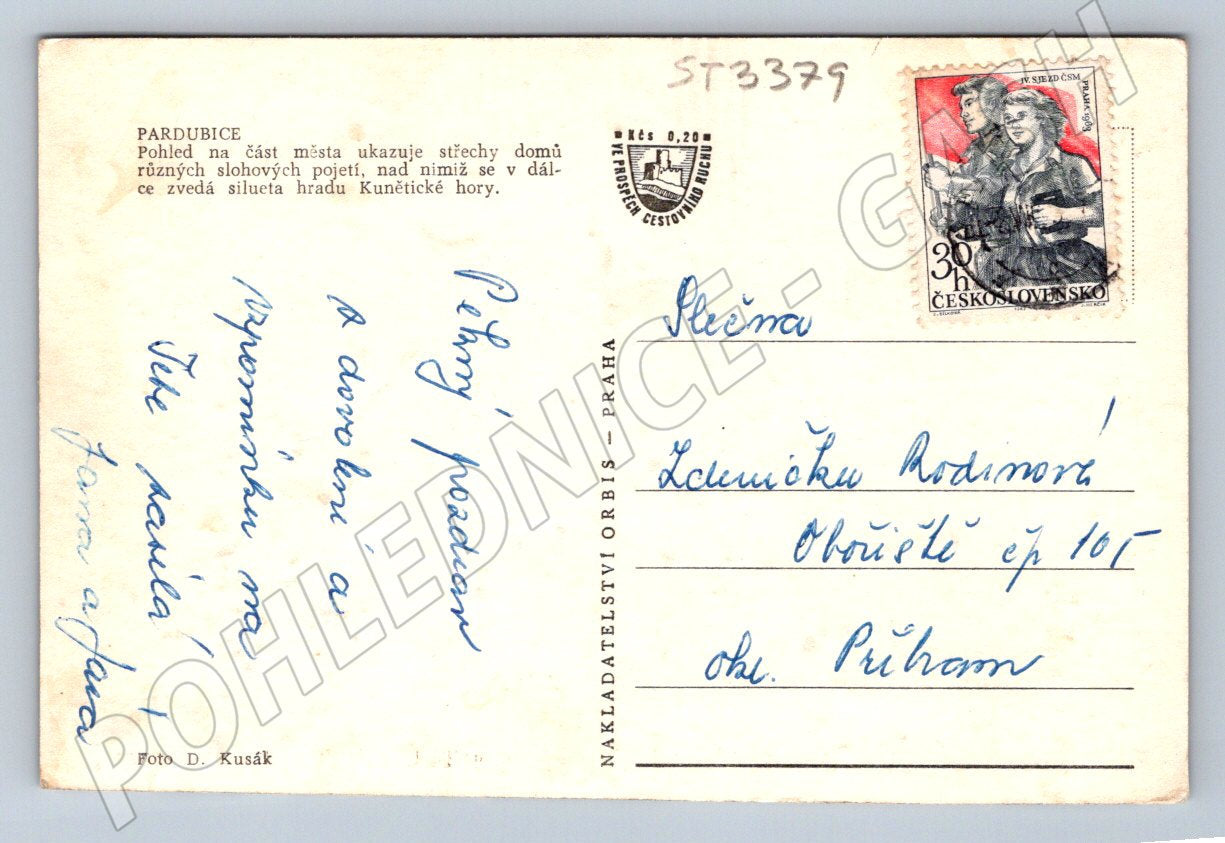 ST3379
PARDUBICE
Pohled na část města ukazuje střechy domů
různých slohových pojetí, nad nimiž se v dál-
ce zvedá silueta hradu Kunětické hory.
Kčs 0,20
VE PROSPĚCH CESTOVNÍHO RUCHU
IV. SJEZD ČSM
PRAHA 1963
30
h
ČESKOSLOVENSKO
Pěkný pozdrav
s dovolení a
vzpomínku na
Tebe zasílá
Jana a Jana
Slečna
Zdenička Rodinová
Obořiště čp 105
okr. Příbram
NAKLADATELSTVÍ ORBIS — PRAHA
Foto D. Kusák
POHLEDNICE - GARCH